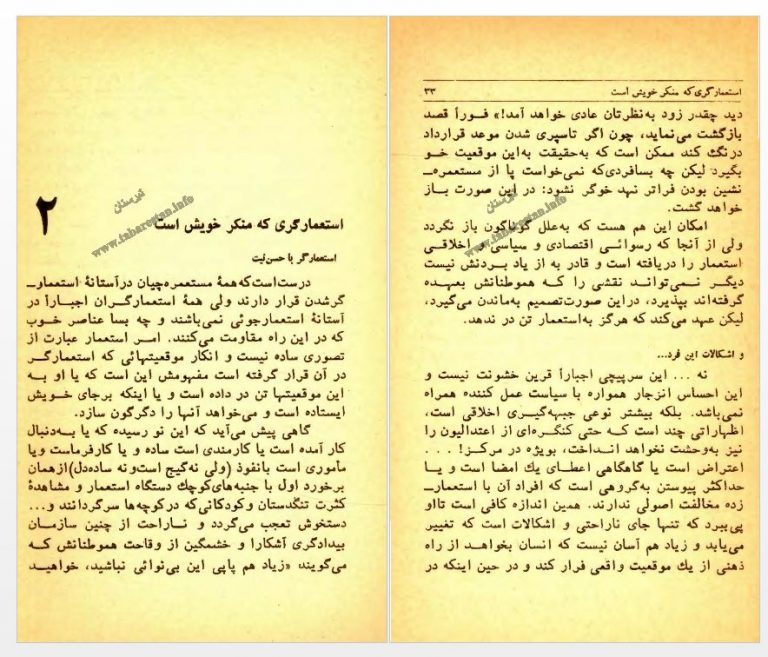 ۲
استعمارگری که منکر خویش است
تبرستان
www.tabarestan.info
استعمارگر با حسن‌نیت
درست است که همهٔ مستعمره‌چیان در آستانهٔ استعمار-
گر شدن قرار دارند ولی همهٔ استعمارگران اجباراً در
آستانهٔ استعمارجوئی نمی‌باشند و چه بسا عناصر خوب
که در این راه مقاومت می‌کنند. امر استعمار عبارت از
تصوری ساده نیست و انکار موقعیتهائی که استعمارگر
در آن قرار گرفته است مفهومش این است که یا او به
این موقعیتها تن در داده است و یا اینکه برجای خویش
ایستاده است و می‌خواهد آنها را دگرگون سازد.
گاهی پیش می‌آید که این نو رسیده که یا به‌دنبال
کار آمده است یا کارمندی است ساده و یا کارفرماست و یا
مأموری است بانفوذ (ولی نه‌گیج است و نه ساده‌دل) از همان
برخورد اول با جنبه‌های کوچک دستگاه استعمار و مشاهدهٔ
کثرت تنگدستان و کودکانی که در کوچه‌ها سرگردانند و...
دستخوش تعجب می‌گردد و ناراحت از چنین سازمان
بیدادگری آشکارا و خشمگین از وقاحت هموطنانش که
می‌گویند «زیاد هم پاپی این بی‌نوائی نباشید، خواهید
استعمارگری که منکر خویش است ۳۳
دید چقدر زود به‌نظرتان عادی خواهد آمد!» فوراً قصد
بازگشت می‌نماید، چون اگر تاسپری شدن موعد قرارداد
درنگ کند ممکن است که به‌حقیقت به‌این موقعیت خو
بگیرد لیکن چه بسافردی‌که نمی‌خواست پا از مستعمره-
نشین بودن فراتر نهد خوگر نشود: در این صورت باز
خواهد گشت.
تبرستان
www.tabarestan.info
امکان این هم هست که به‌علل گوناگون باز نگردد
ولی از آنجا که رسوائی اقتصادی و سیاسی و اخلاقی
استعمار را دریافته است و قادر به از یاد بردنش نیست
دیگر نمی‌تواند نقشی را که هموطنانش بعهده
گرفته‌اند بپذیرد، در این صورت تصمیم به‌ماندن می‌گیرد،
لیکن عهد می‌کند که هرگز به‌استعمار تن در ندهد.
و اشکالات این فرد...
نه ... این سرپیچی اجباراً قرین خشونت نیست و
این احساس انزجار همواره با سیاست عمل کننده همراه
نمی‌باشد. بلکه بیشتر نوعی جبهه‌گیری اخلاقی است،
اظهاراتی چند است که حتی کنگره‌ای از اعتدالیون را
نیز به‌وحشت نخواهد انداخت، بویژه در مرکز! ...
اعتراض است یا گاهگاهی اعطای یک امضا است و یا
حداکثر پیوستن به‌گروهی است که افراد آن با استعمار-
زده مخالفت اصولی ندارند. همین اندازه کافی است تا او
پی‌ببرد که تنها جای ناراحتی و اشکالات است که تغییر
می‌یابد و زیاد هم آسان نیست که انسان بخواهد از راه
ذهنی از یک موقعیت واقعی فرار کند و در حین اینکه در